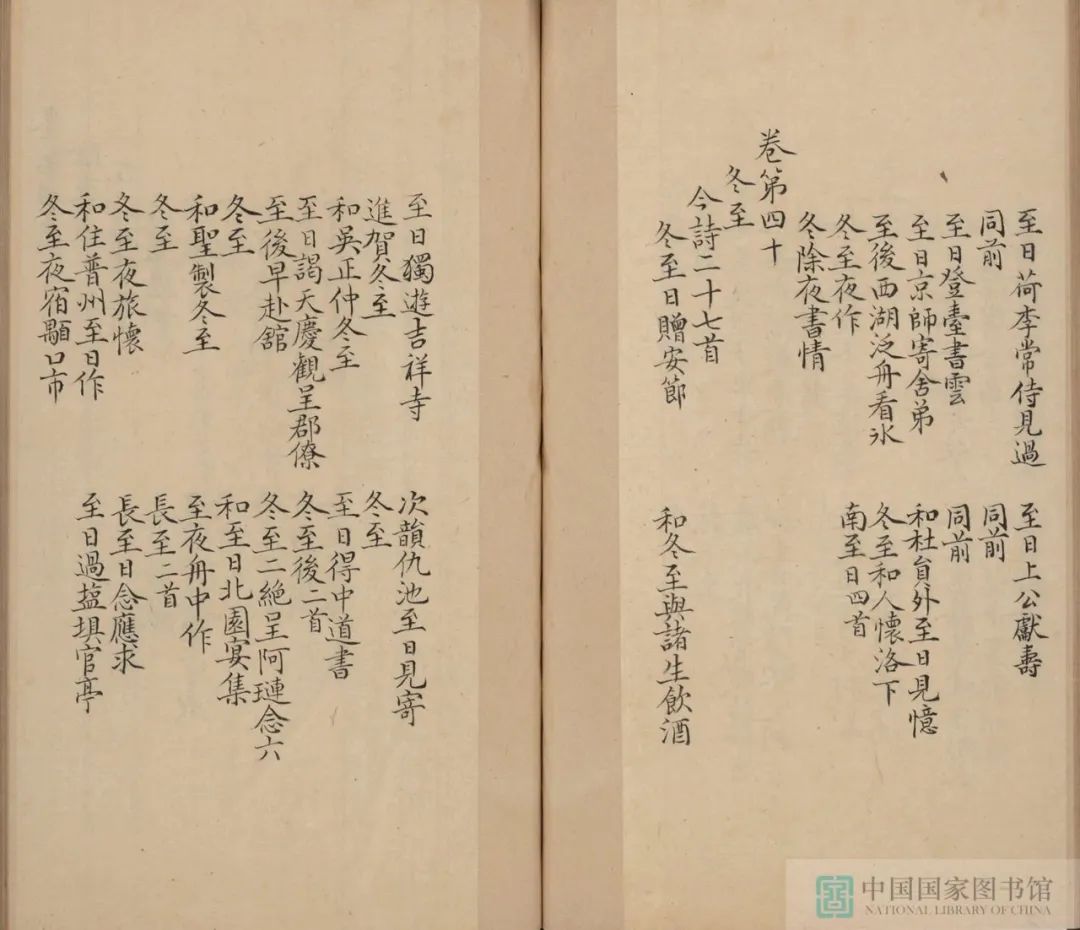 至日荷李常侍見過
至日上公獻壽
同前
同前
至日登臺書雲
同前
至日京師寄舍弟
和杜員外至日見憶
至後西湖泛舟看氷
冬至和人懷洛下
冬至夜作
南至日四首
冬除夜書情
卷第四十
冬至
今詩二十七首
冬至日贈安節
和冬至與諸生飲酒
至日獨遊吉祥寺
次韻仇池至日見寄
進賀冬至
冬至
和吳正仲冬至
至日得中道書
至日謁天慶觀呈郡僚
冬至後二首
至後早赴舘
冬至二絕呈阿璉念六
冬至
和至日北園宴集
和聖製冬至
至夜舟中作
冬至
長至二首
冬至夜旅懷
長至日念應求
和住普州至日作
至日過塩埧官亭
冬至夜宿口市
中国国家图书馆
NATIONAL LIBRARY OF CHINA